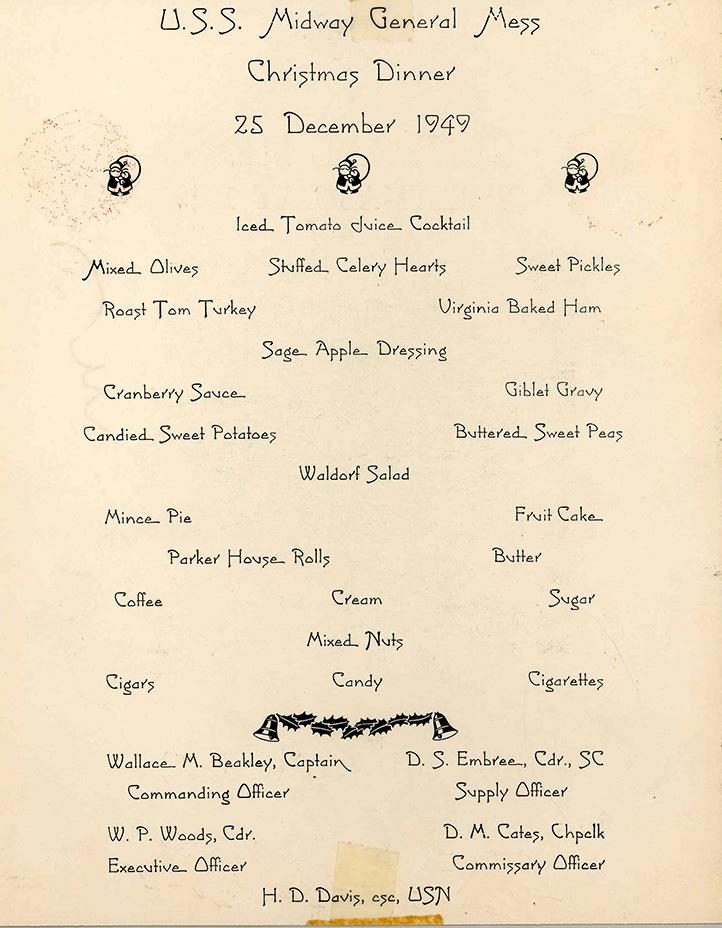 U.S.S. Midway General Mess
Christmas Dinner
25 December 1949
Iced Tomato Juice Cocktail
Mixed Olives Stuffed Celery Hearts Sweet Pickles
Roast Tom Turkey Virginia Baked Ham
Sage Apple Dressing
Cranberry Sauce Giblet Gravy
Candied Sweet Potatoes Buttered Sweet Peas
Waldorf Salad
Mince Pie Fruit Cake
Parker House Rolls Butter
Coffee Cream Sugar
Mixed Nuts
Cigars Candy Cigarettes
Wallace M. Beakley, Captain D. S. Embree, Cdr., SC
Commanding Officer Supply Officer
W. P. Woods, Cdr. D. M. Cates, Chpclk
Executive Officer Commissary Officer
H. D. Davis, csc, USN